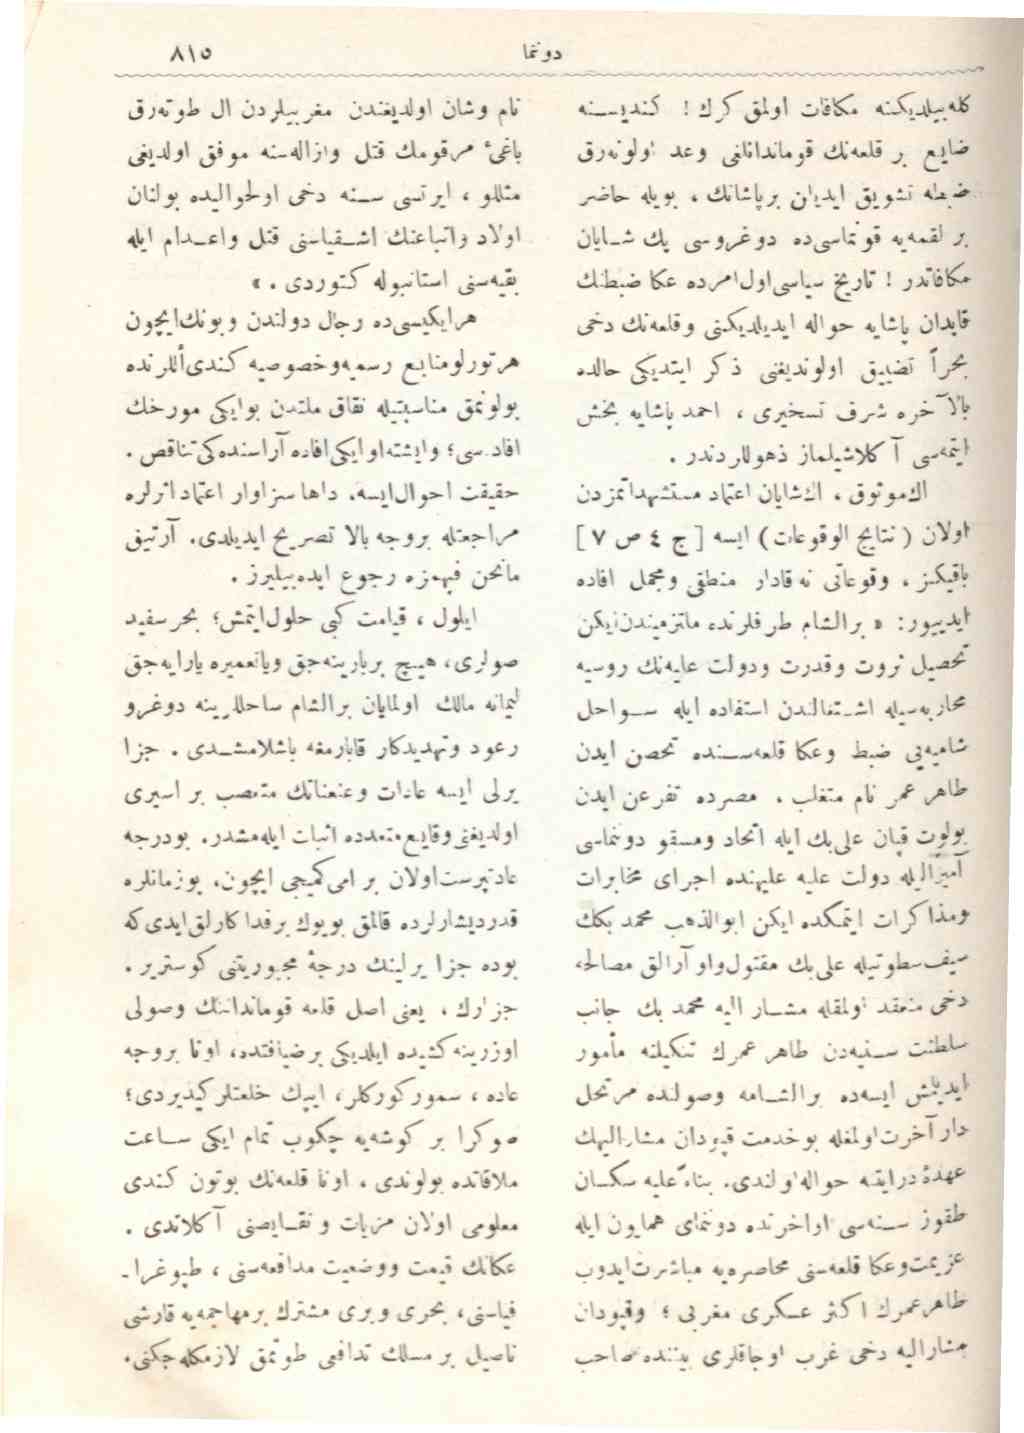 دوننما
٨١٥
كله‌بيلديكنه مكافات اولمق كرك ! كنديسنه
ضايع بر قلعه‌نك قوماندانلغى وعد اولونه‌رق
ضبطه تشويق ايديلن برپاشانك ، بويله حاضر
بر لقمه‌يه قونماسى‌ده دوغروسى پك شايان
مكافاتدر ! تاريخ سياسى اول‌امرده عكا ضبطنك
قايدان پاشايه حواله ايديلديكنى وقلعه‌نك دخى
بحراً تضييق اولونديغنى ذكر ايتديكى حالده
بالآخره شرف تسخيرى ، احمد پاشايه بخش
ايتمه‌سى آكلاشيلماز ذهوللردندر .
اك‌موثوق ، اك‌شايان اعتماد مستشهداتمزدن
اولان ( نتايج الوقوعات ) ايسه [ ج ٤ ص ٧ ]
باقيكز ، وقوعاتى نه قادار منطقى ومجمل افاده
ايدييور: « برالشام طرفلرنده ملتزميندن‌ايكن
تحصيل ثروت وقدرت ودولت عليه‌نك روسيه
محاربه‌سيله اشتغالندن استفاده ايله سواحل
شاميه‌يى ضبط وعكا قلعه‌سنده تحصن ايدن
طاهر عمر نام متغلب ، مصرده تفرعن ايدن
بولوت قپان على‌بك ايله اتحاد ومسقو دوننماسى
آميراليله دولت عليه عليهنده اجراى مخابرات
ومذاكرات ايتمكده ايكن ابوالذهب محمد بكك
سيف‌سطوتيله على‌بك مقتول‌واو آرالق مصالحه
دخى منعقد اولمقله مشار اليه محمد بك جانب
سلطنت سنيه‌دن طاهر عمرك تنكيلنه مأمور
ايديلمش ايسه‌ده برالشامه وصولنده مرتحل
دار آخرت‌اولمغله بوخدمت قپودان مشاراليهك
عهدۀ درايتنه حواله‌اولندى. بناءً عليه سكسان
طقوز سنه‌سى اواخرنده دوننماى همايون ايله
عزيمت‌وعكا قلعه‌سنى محاصره‌يه مباشرت‌ايدوب
طاهرعمرك اكثر عسكرى مغربى ؛ وقپودان
مشاراليه دخى غرب اوجاقلرى بيننده صاحب
نام وشان اولديغندن مغربيلردن ال طوته‌رق
باغئ مرقومك قتل وازاله‌سنه موفق اولديغى
مثللو ، ايرتسى سنه دخى اولحواليده بولنان
اولاد واتباعنك اشقياسنى قتل واعدام ايله
بقيه‌سنى استانبوله كتوردى . »
هرايكيسى‌ده رجال دولتدن وبونك‌ايچون
هرتورلومنابع رسميه‌وخصوصيه كندى‌اللرنده
بولونمق مناسبتيله نقاق ملتدن بوايكى مورخك
افاده‌سى؛ وايشته‌اوايكى‌افاده آراسنده‌كى‌تناقص .
حقيقت احوال‌ايسه، داهاسزاوار اعتماد اثرلره
مراجعتله بروجه بالا تصريح ايديلدى. آرتيق
مانحن فيهمزه رجوع ايده‌بيليرز .
ايلول ، قيامت كبى حلول‌ايتمش؛ بحرسفيد
صولرى، هيچ بربارينه‌جق وياتعميره يارايه‌جق
ليمانه مالك اولمايان برالشام ساحللرينه دوغرو
رعود وتهديدكار قابارمغه باشلامشدى . جزا
يرلى ايسه عادات وعنعناتك متعصب بر اسيرى
اولديغنى‌وقايع‌متعدده اثبات ايله‌مشدر. بودرجه
عادتپرست‌اولان بر امى كميجى ايچون، بوزمانلره
قدرديشارلرده قالمق بويوك برفداكارلق‌ايدى‌كه
بوده جزا يرلينك درجۀ مجبوريتنى كوستريز .
جزارك ، يعنى اصل قلعه قوماندانينك وصولى
اوزرينه كشيده ايلديكى برضيافتده، اونا بروجه
عاده ، سموركوركلر، ايپك خلعتلركيديردى؛
صوكرا بر كوشه‌يه چكوب تمام ايكى ساعت
ملاقاتده بولوندى ، اونا قلعه‌نك بوتون كندى
معلومى اولان مزيات و نقايصنى آكلاتدى .
عكانك قيمت ووضعيت مدافعه‌سنى ، طپوغرا-
فياسنى، بحرى وبرى مشترك برمهاجمه‌يه قارشى
ناصيل بر مسلك تدافعى طوتمق لازمكله‌جكنى.